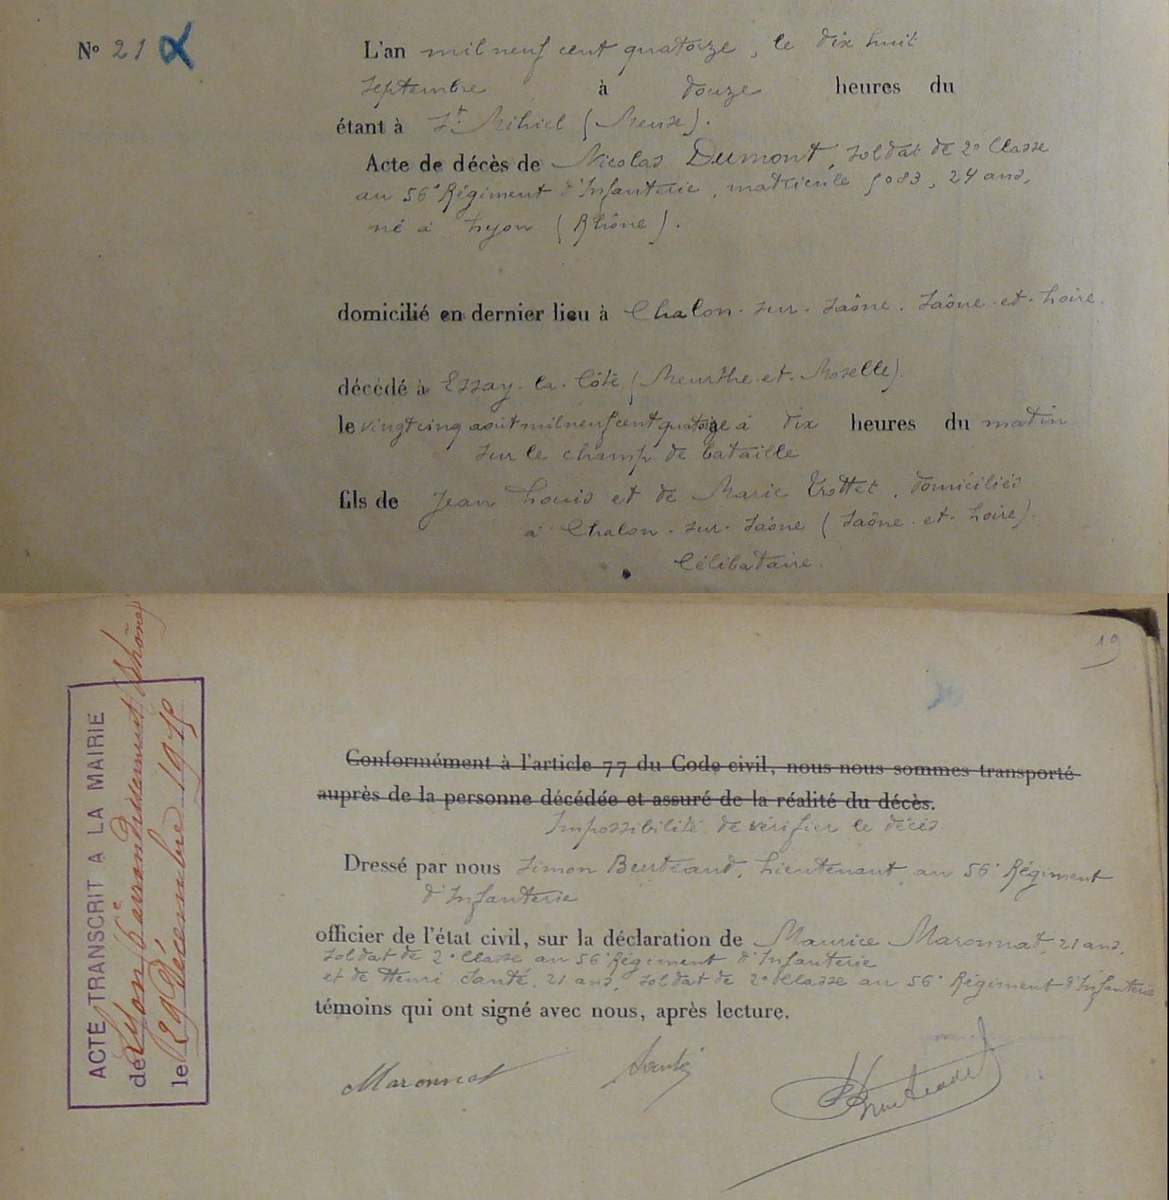 N° 21
L'an mil neuf cent quatorze, le dix huit
septembre à douze heures du
étant à St Mihiel (Meuse).
Acte de décès de Nicolas Dumont, soldat de 2e Classe
au 56e Régiment d'Infanterie, matricule 5083, 24 ans,
né à Lyon (Rhône).
domicilié en dernier lieu à Chalon-sur-Saône. Saône-et-Loire.
décédé à Essay-la-Côte (Meurthe-et-Moselle)
le vingt cinq août mil neuf cent quatorze à dix heures du matin
sur le champ de bataille
fils de Jean Louis et de Marie Trottet, domiciliés
à Chalon-sur-Saône (Saône-et-Loire).
Célibataire.
19
Conformément à l'article 77 du Code civil, nous nous sommes transporté
auprès de la personne décédée et assuré de la réalité du décès.
Impossibilité de vérifier le décès
Dressé par nous Simon Berteaud, Lieutenant au 56e Régiment
d'Infanterie
officier de l'état civil, sur la déclaration de Maurice Maronnat, 21 ans,
soldat de 2e Classe au 56e Régiment d'Infanterie
et de Henri Santé, 21 ans, soldat de 2e Classe au 56e Régiment d'Infanterie
témoins qui ont signé avec nous, après lecture.
Maronnat Santé
ACTE TRANSCRIT A LA MAIRIE
de Lyon arrondissement (Rhône)
le 29 Décembre 1915